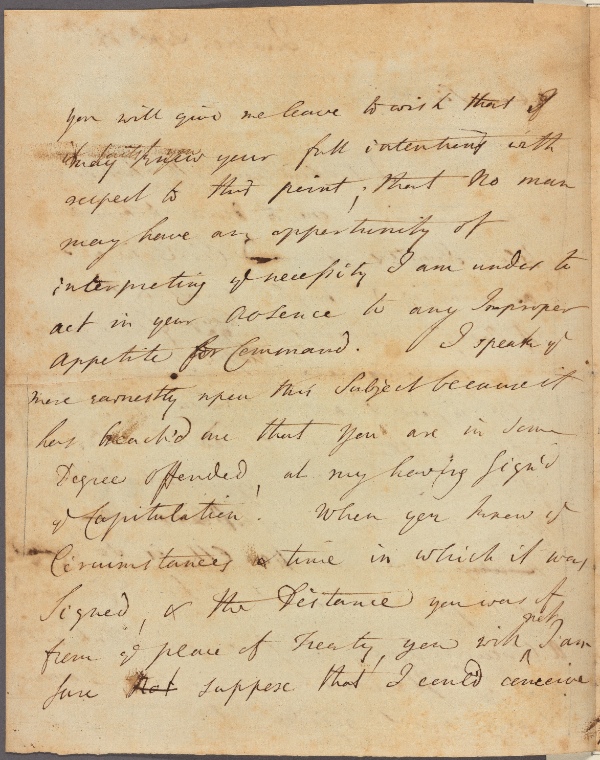 you will give me leave to wish that I
truly knew your full intentions with
respect to this point; that no man
may have an opportunity of
interpreting ye necessity I am under to
act in your absence to any Improper
appetite for Command. I speak ye
more earnestly upon this Subject because it
has reach'd me that you are in some
Degree offended, at my having Sign'd
ye Capitulation. When you know ye
Circumstances & time in which it was
Signed, & the Distance you was of
from ye place of Treaty, you will not I am
sure not suppose that I could conceive